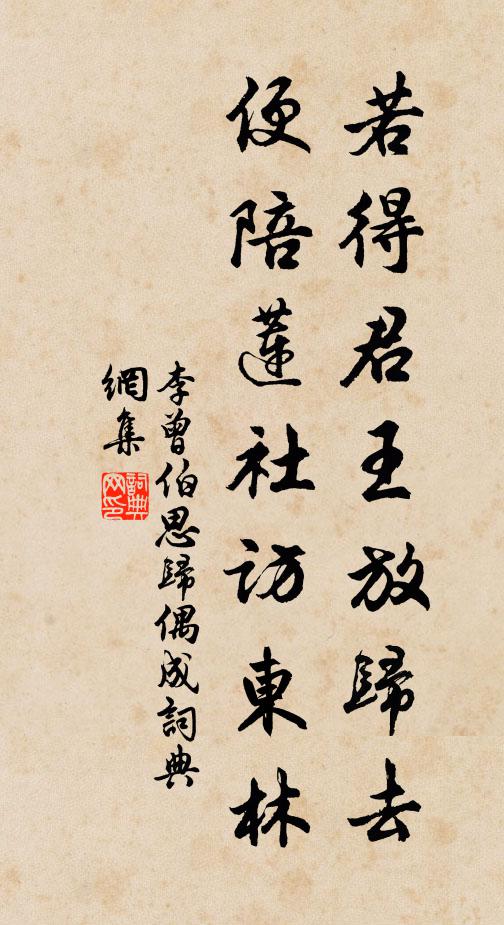 若得君王放歸去
便陪蓮社訪東林
李曾伯思歸偶成詞典
網集
詞典網印